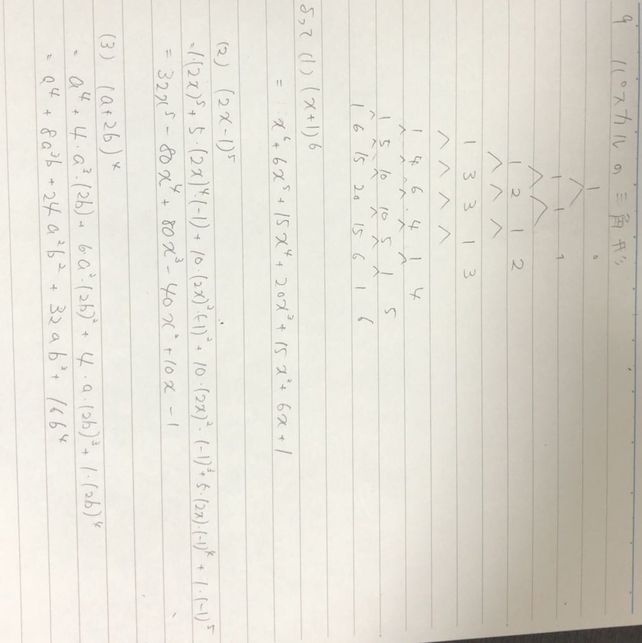 9 パスカルの三角形
1 0
1 1 1
1 2 1 2
1 3 3 1 3
1 4 6 4 1 4
1 5 10 10 5 1 5
1 6 15 20 15 6 1 6
(1) (x+1)⁶
= x⁶+6x⁵+15x⁴+20x³+15x²+6x+1
(2) (2x-1)⁵
=1·(2x)⁵+5·(2x)⁴(-1)+10·(2x)³·(-1)²+10·(2x)²·(-1)³+5·(2x)·(-1)⁴+1·(-1)⁵
= 32x⁵-80x⁴+80x³-40x²+10x-1
(3) (a+2b)⁴
= a⁴+4·a³·(2b)+6a²·(2b)²+4·a·(2b)³+1·(2b)⁴
= a⁴+8a³b+24a²b²+32ab³+16b⁴